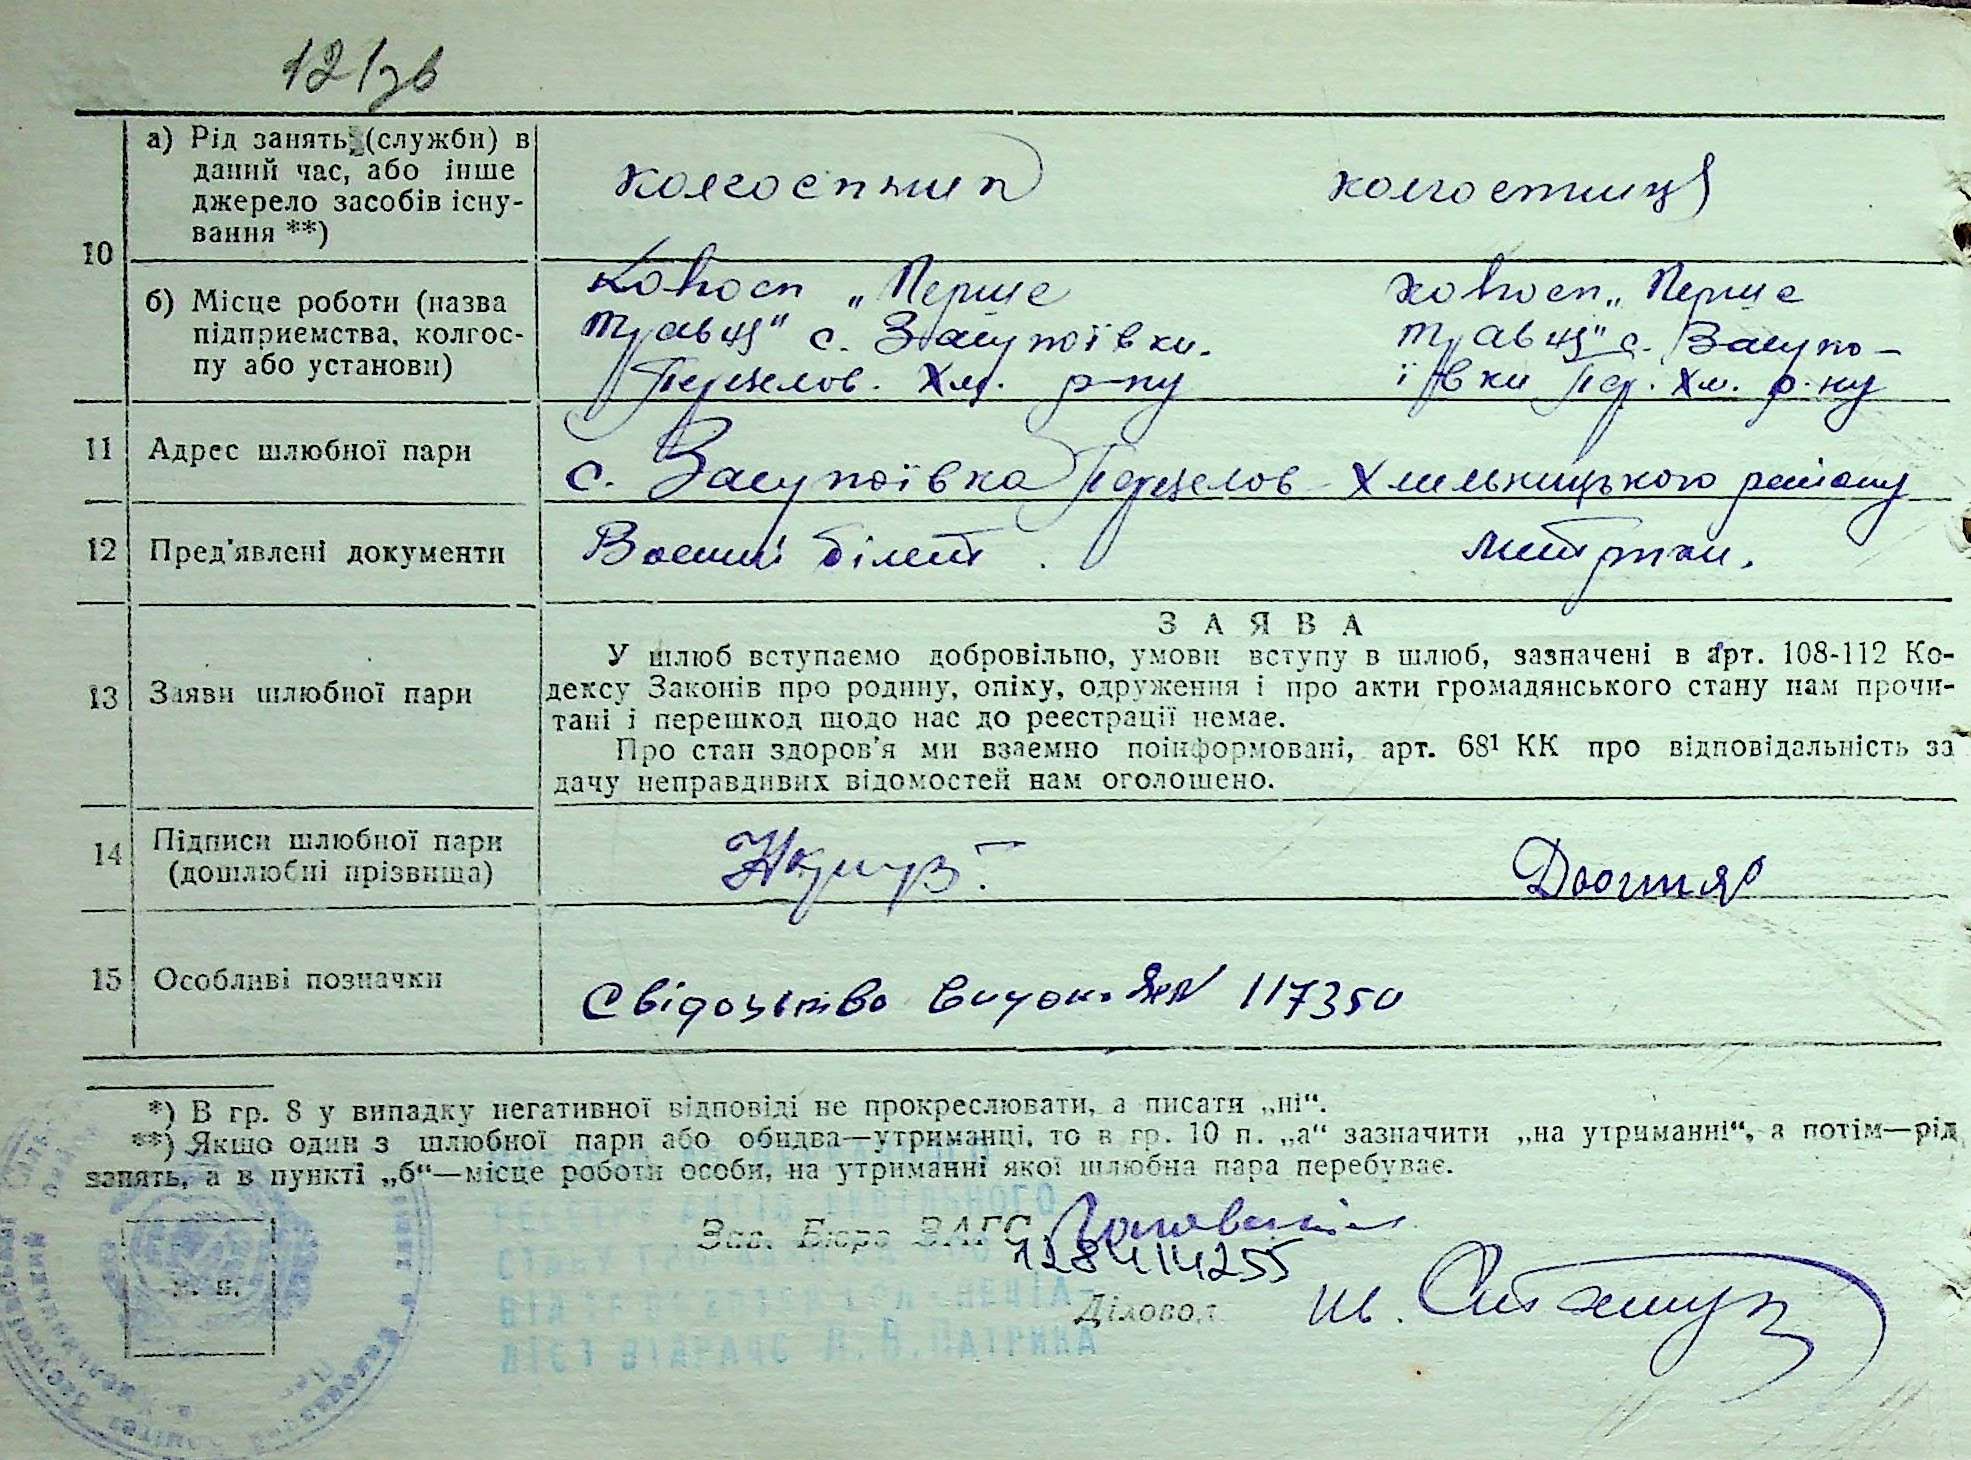 12/зв
10
а) Рід занять (служби) в
даний час, або інше
джерело засобів існу-
вання **)
колгоспник
колгоспниця
б) Місце роботи (назва
підприємства, колгос-
пу або установи)
Колгосп „Перше
травня" с. Засупоївки
р-ну
колгосп „Перше
травня" с. Засупо-
ївки Пер. Хм. р-ну
11
Адрес шлюбної пари
с. Засупоївка Хмельницького району
12
Пред'явлені документи
Воєнний білет
метрики.
13
Заяви шлюбної пари
ЗАЯВА
У шлюб вступаємо добровільно, умови вступу в шлюб, зазначені в арт. 108-112 Ко-
дексу Законів про родину, опіку, одруження і про акти громадянського стану нам прочи-
тані і перешкод щодо нас до реєстрації немає.
Про стан здоров'я ми взаємно поінформовані, арт. 68¹ КК про відповідальність за
дачу неправдивих відомостей нам оголошено.
14
Підписи шлюбної пари
(дошлюбні прізвища)
15
Особливі позначки
Свідоцтво 117350
*) В гр. 8 у випадку негативної відповіді не прокреслювати, а писати „ні“.
**) Якщо один з шлюбної пари або обидва—утриманці, то в гр. 10 п. „а“ зазначити „на утриманні“, а потім—рід
занять, а в пункті „б“—місце роботи особи, на утриманні якої шлюбна пара перебуває.
Зав. Бюро ЗАГС
1284114255
Діловод
М. П.